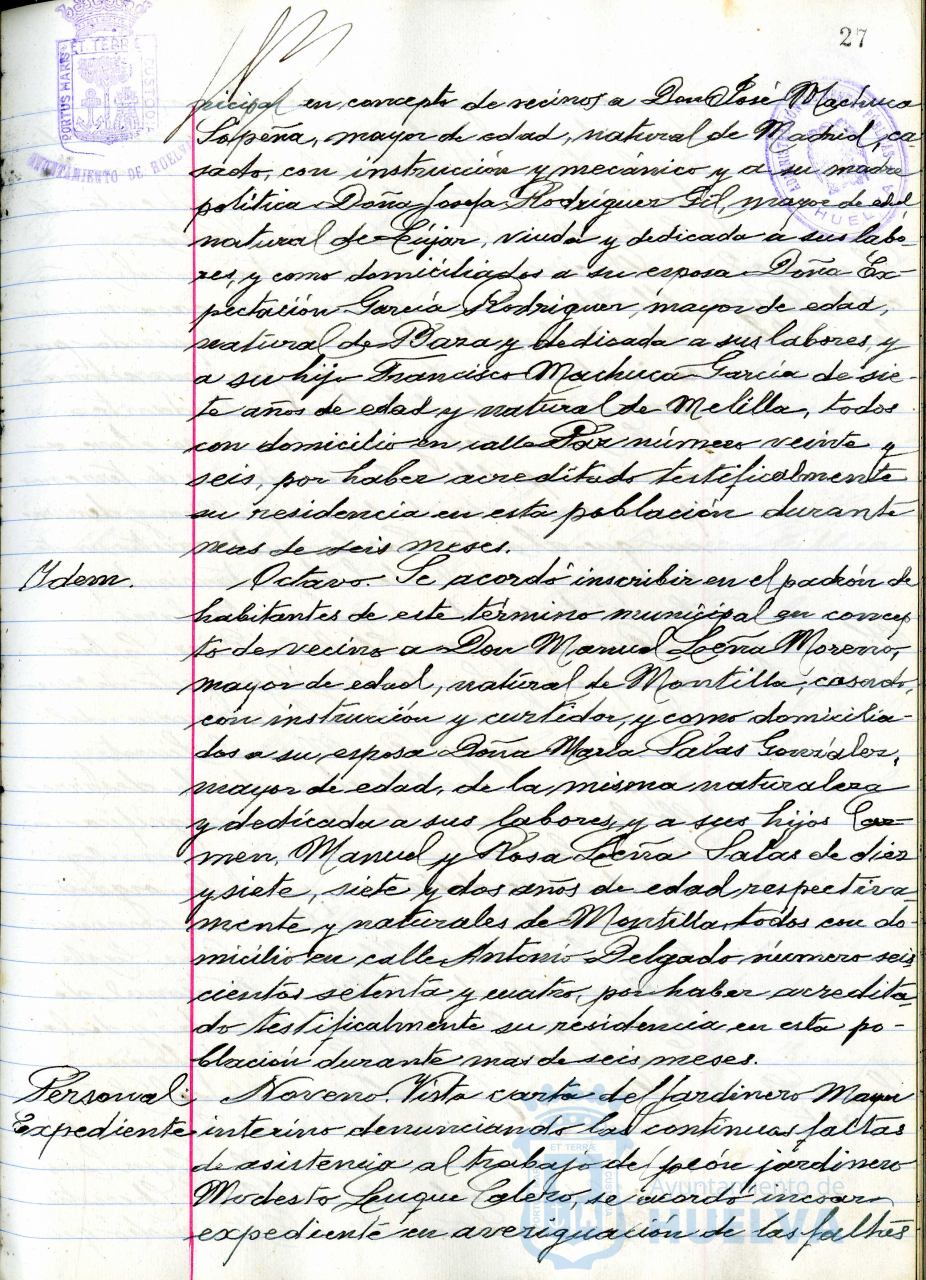 27
PORTUS MARIS ET TERRE CUSTODIA
AYUNTAMIENTO DE HUELVA
nicipal en concepto de vecinos a Don José Machuca
Lapeña, mayor de edad, natural de Madrid, ca-
sado, con instrucción y mecánico y a su madre
política Doña Josefa Rodríguez Gil, mayor de edad
natural de Lújar, viuda y dedicada a sus labo-
res, y como domiciliados a su esposa Doña Ex-
pectación García Rodríguez, mayor de edad,
natural de Baza y dedicada a sus labores, y
a su hijo Francisco Machuca García de sie-
te años de edad y natural de Melilla, todos
con domicilio en calle Paz número veinte y
seis, por haber acreditado testificalmente
su residencia en esta población durante
mas de seis meses.
Idem. Octavo. Se acordó inscribir en el padrón de
habitantes de este término municipal en concep
to de vecino a Don Manuel Leña Moreno,
mayor de edad, natural de Montilla, casado,
con instrucción y curtidor, y como domicilia-
dos a su esposa Doña María Salas González,
mayor de edad, de la misma naturaleza
y dedicada a sus labores, y a sus hijos Car-
men, Manuel y Rosa Leña Salas de diez
y siete, siete y dos años de edad respectiva
mente y naturales de Montilla, todos con do-
micilio en calle Antonio Delgado, número seis
cientos setenta y cuatro, por haber acredita-
do testificalmente su residencia en esta po-
blación durante mas de seis meses.
Personal: Noveno. Vista carta del Jardinero Mayor
Expediente interino denunciando las continuas faltas
de asistencia al trabajo del peón jardinero
Modesto Luque Calero, se acordó incoar
expediente en averiguación de las faltas
Ayuntamiento de
HUELVA